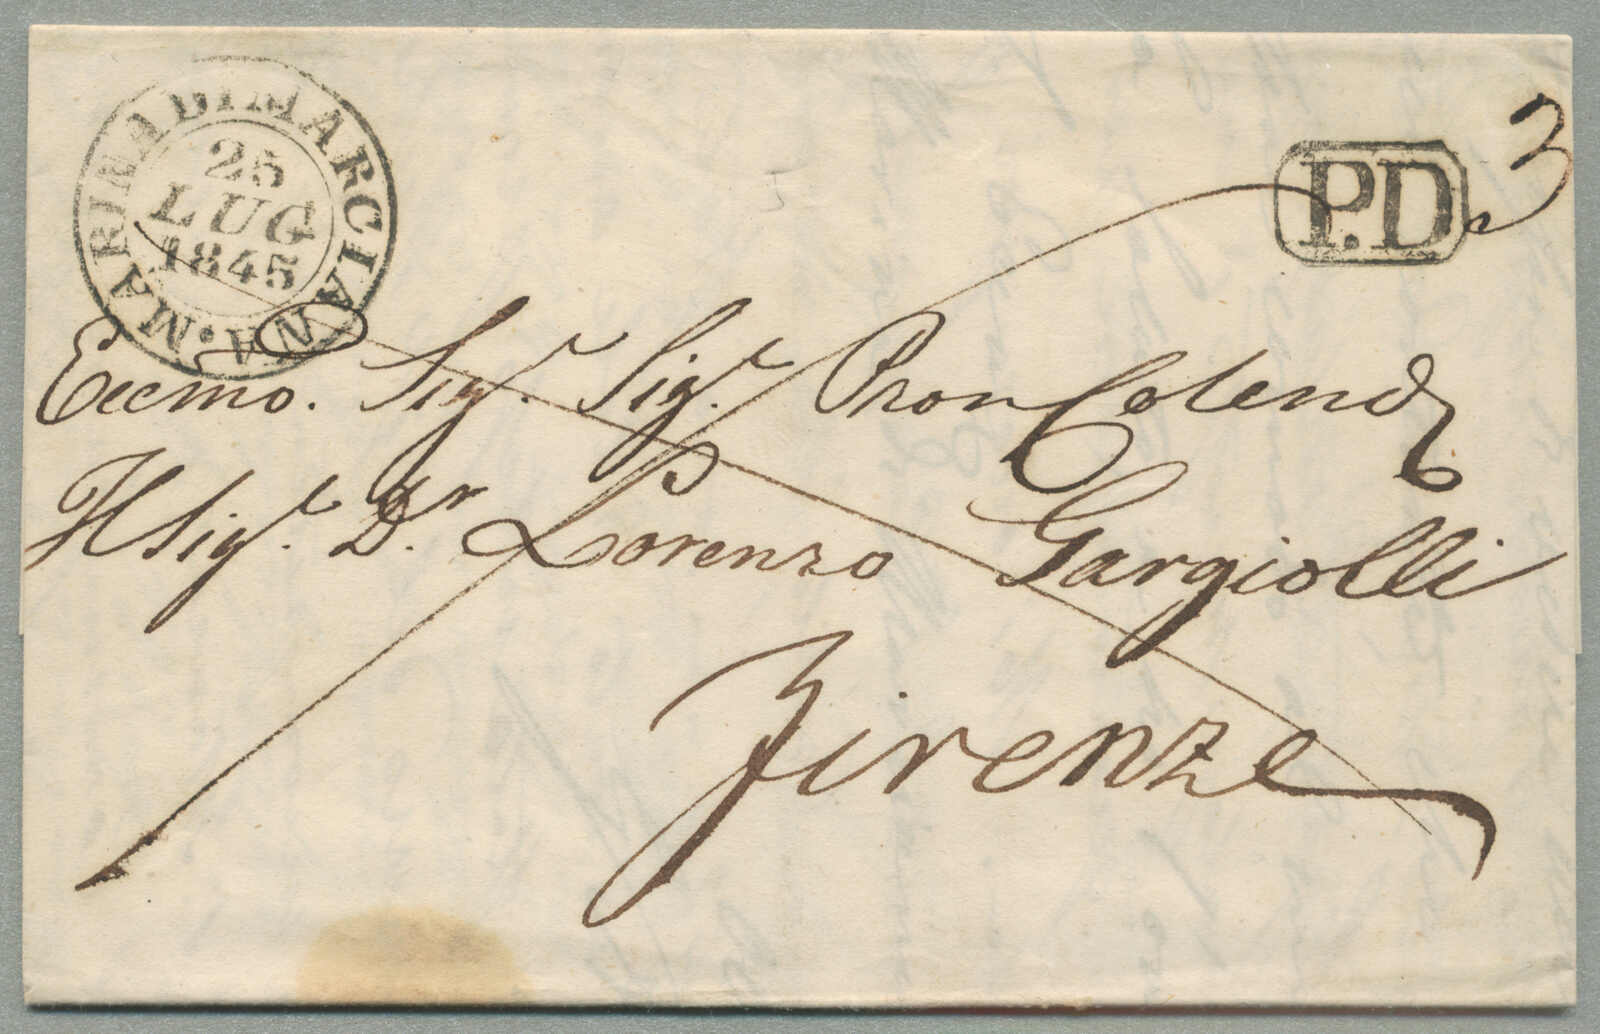 MARINA DI MARCIANA
25
LUG
1845
P.D
3
Eccmo. Sigr. Sigr. Pron Colendo
Il Sigr. Dr. Lorenzo Gargiolli
Firenze